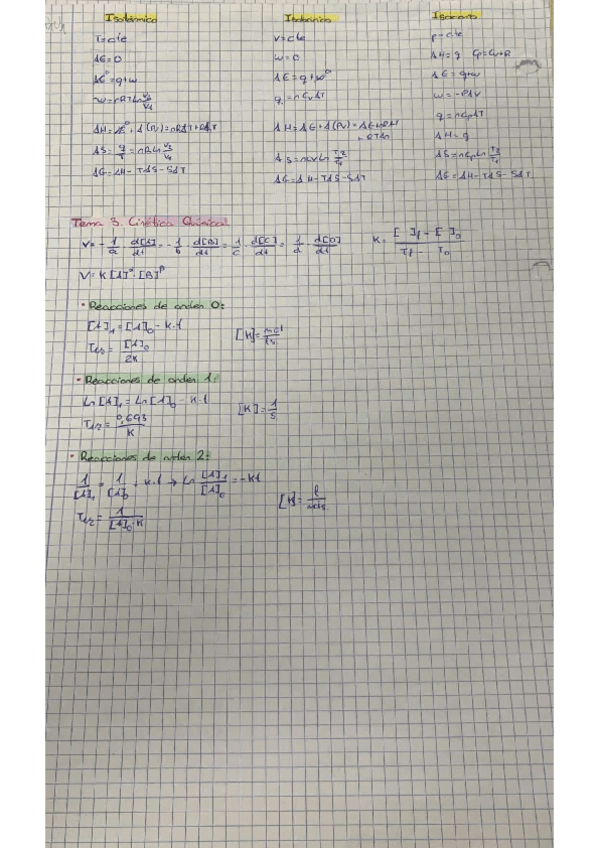 Isotérmico
T=cte
ΔE=0
ΔE⁰=q+w
w=-nRTLn V₂/V₁
ΔS= q/T = nRLn V₂/V₁
ΔG=ΔH-TΔS-SΔT
Isobárico
V=cte
w=0
ΔE=q+w⁰
q=nCvΔT
ΔG=ΔH-TΔS-SΔT
Isocoro
p=cte
ΔH=q Cp=Cv+R
ΔE=q+w
w=-PΔV
q=nCpΔT
ΔH=q
ΔS=nCpLn T₂/T₁
ΔG=ΔH-TΔS-SΔT
Tema 3. Cinética Química
V=- 1/a · d[A]/dt =- 1/b · d[B]/dt = 1/c · d[C]/dt = 1/d · d[D]/dt
K= [ ]f-[ ]₀ / Tf - T₀
V=K[A]^α·[B]^β
• Reacciones de orden 0:
[A]t=[A]₀-k·t
[K]= mol/l·s
T1/2= [A]₀/2K
• Reacciones de orden 1:
Ln[A]t=Ln[A]₀-k·t
[K]= 1/s
T1/2= 0,693/K
• Reacciones de orden 2:
1/[A]t = 1/[A]₀ + k·t → Ln [A]t/[A]₀ =-kt
[K]= l/mol·s
T1/2= 1/[A]₀·K